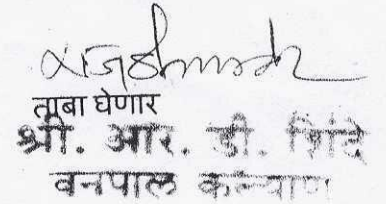 ताबा घेणार
श्री. आर. डी. शिंदे
वनपाल कल्याण